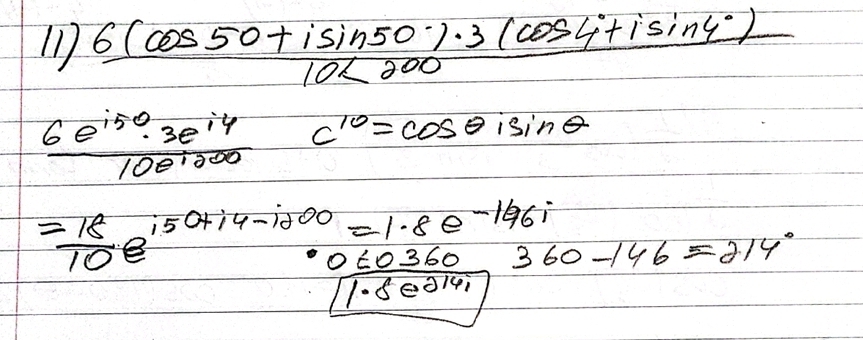 11) 6 (cos 50 + i sin 50°) · 3 (cos 4° + i sin 4°)
10∠ 200
6 e^i50 · 3e^i4 / 10e^i200 c^i0 = cos θ i sin θ
= 18/10 e^i50+i4-i200 = 1.8 e^-146i
• 0 ≤ 0 360 360 - 146 = 214°
1.8 e^214i